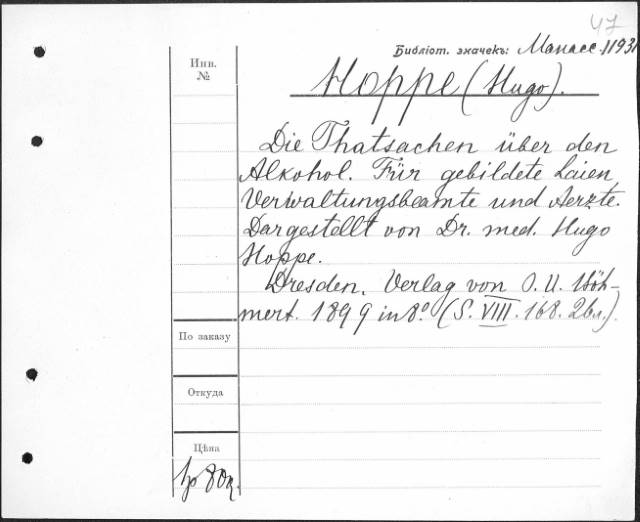 47
Библіот. значекъ: Манасс. 11931
Инв.
№
Hoppe (Hugo).
Die Thatsachen über den
Alkohol. Für gebildete Laien
Verwaltungsbeamte und Aerzte.
Dargestellt von Dr. med. Hugo
Hoppe.
Dresden. Verlag von O. U. Böh-
mert. 1899 in 8º. (S. VIII. 168. 2бл.).
По заказу
Откуда
Цѣна